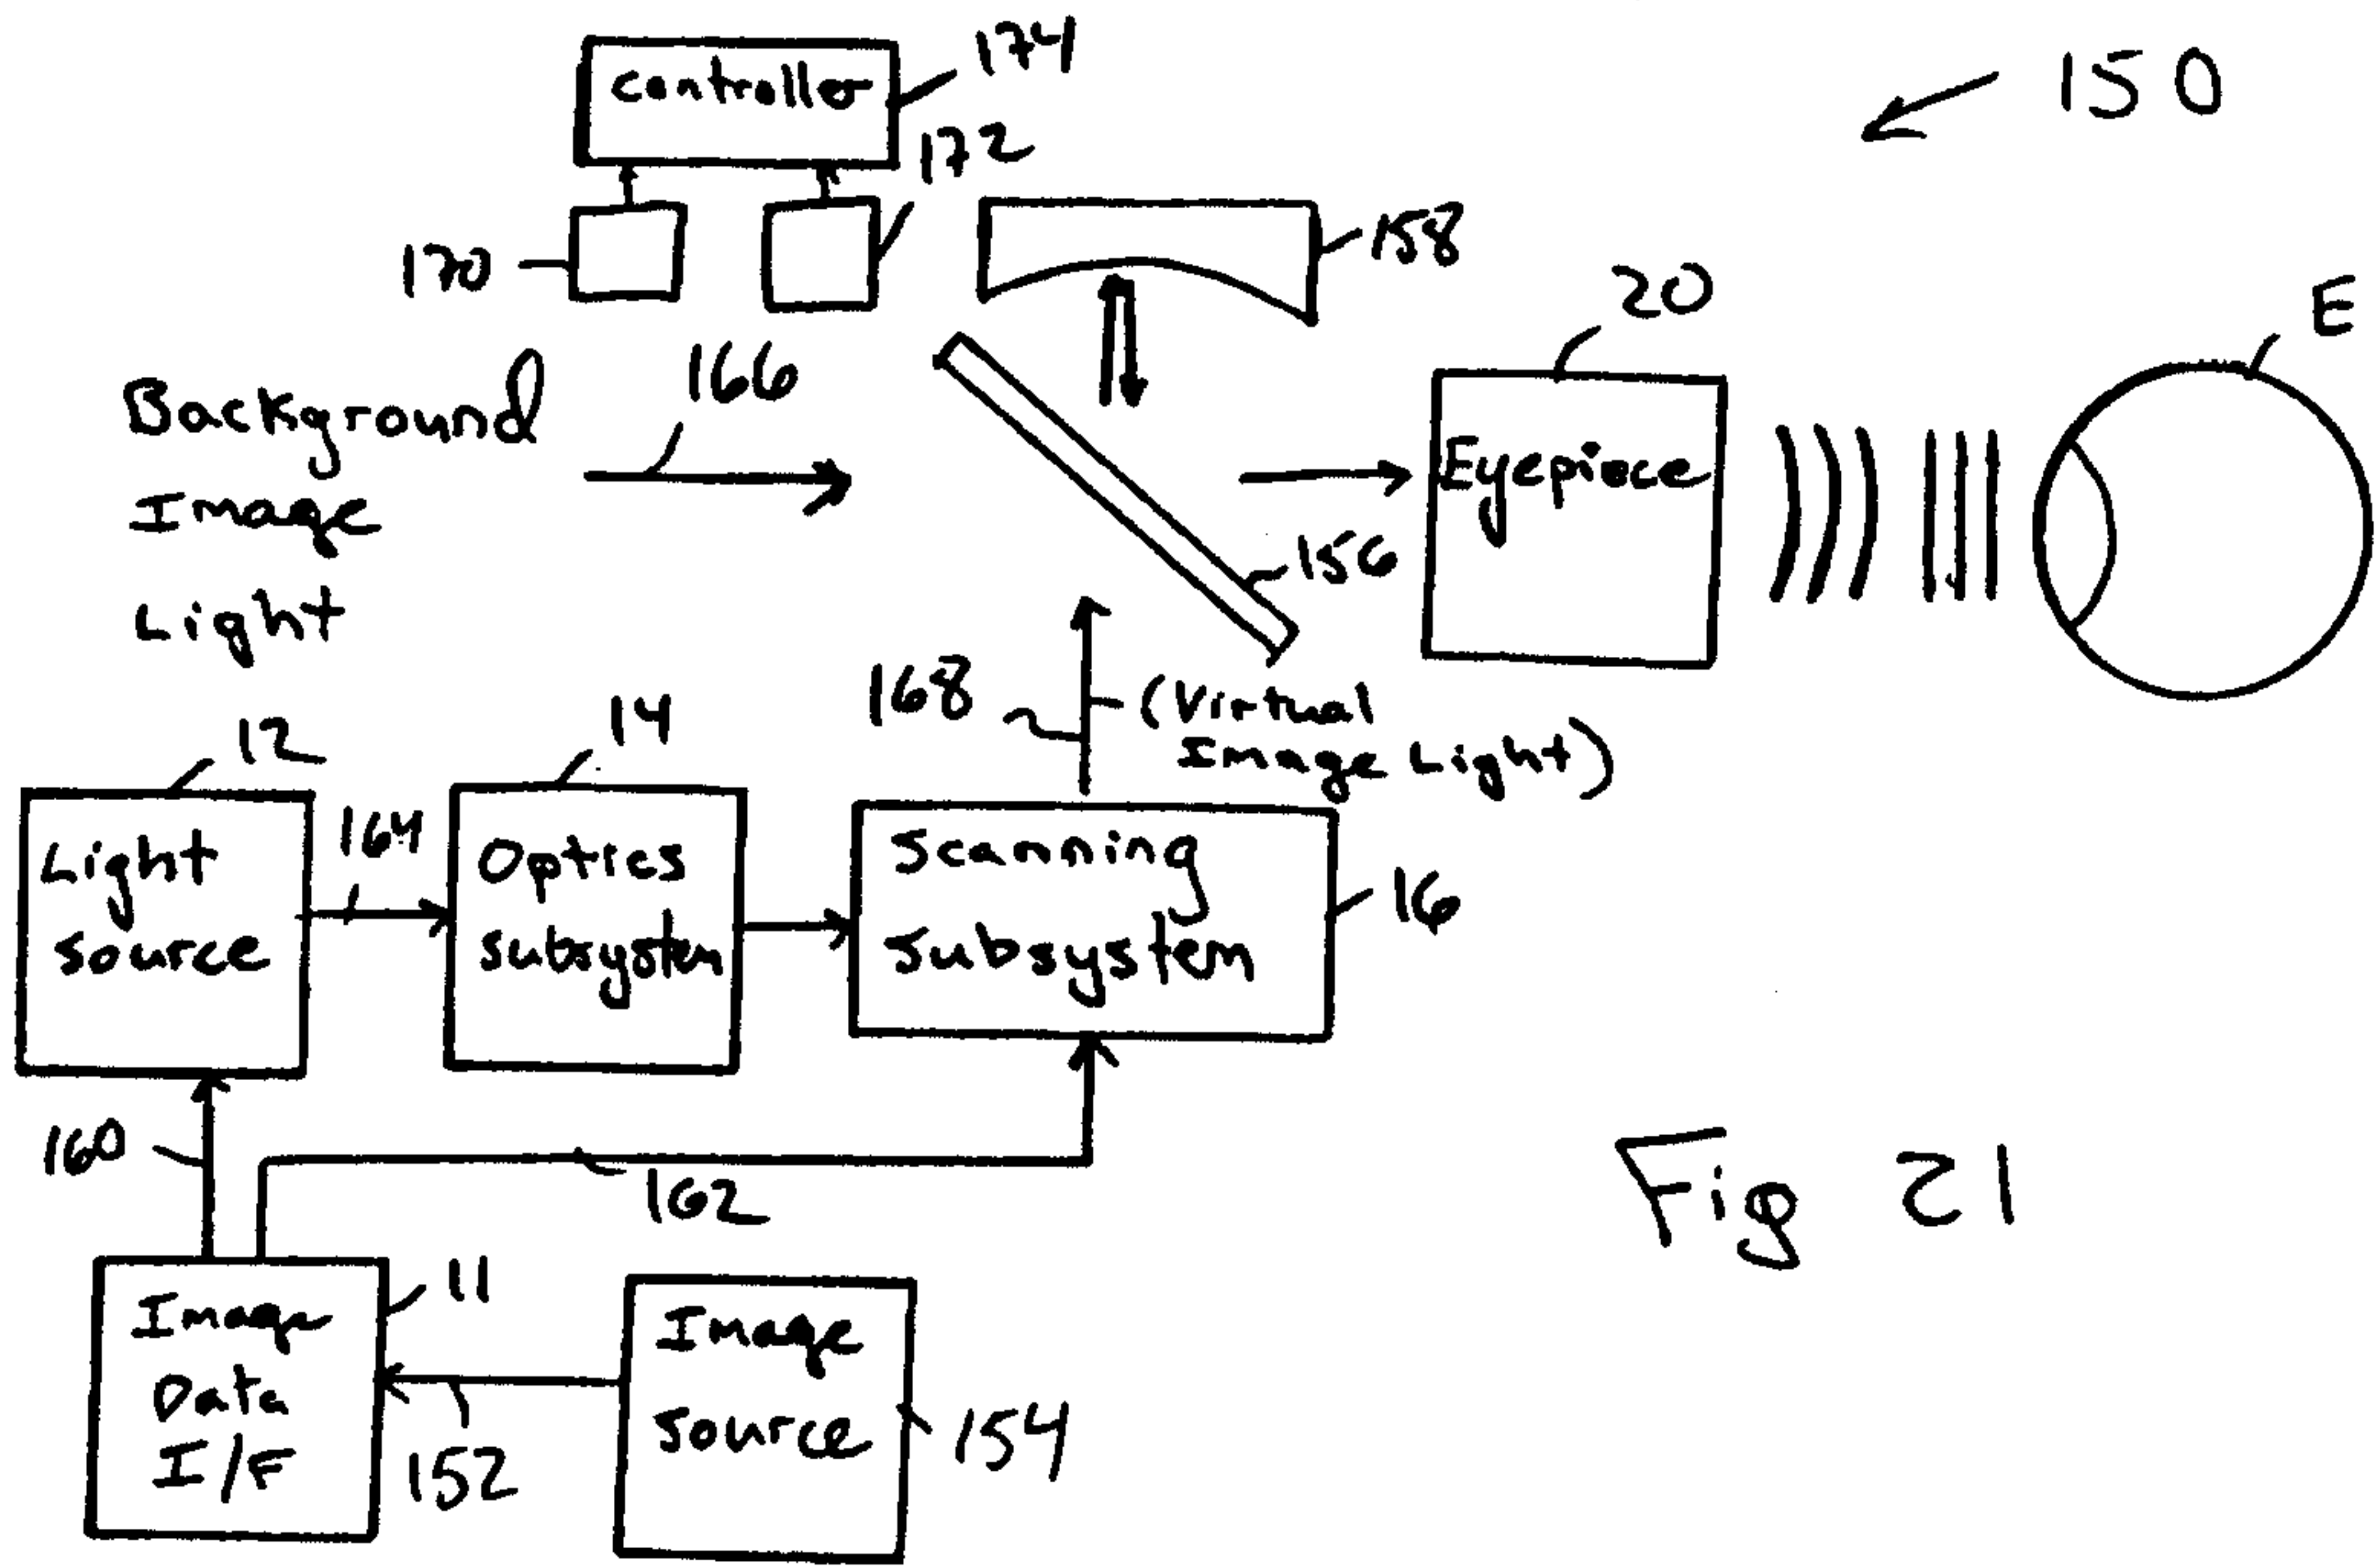 controller
174
150
172
170
158
20
E
166
Background
Image
Light
Eyepiece
156
168
(Virtual
Image Light)
12
14
164
Light
source
Optics
subsystem
Scanning
subsystem
16
160
162
Fig 21
11
Image
Data
I/F
152
Image
source
154